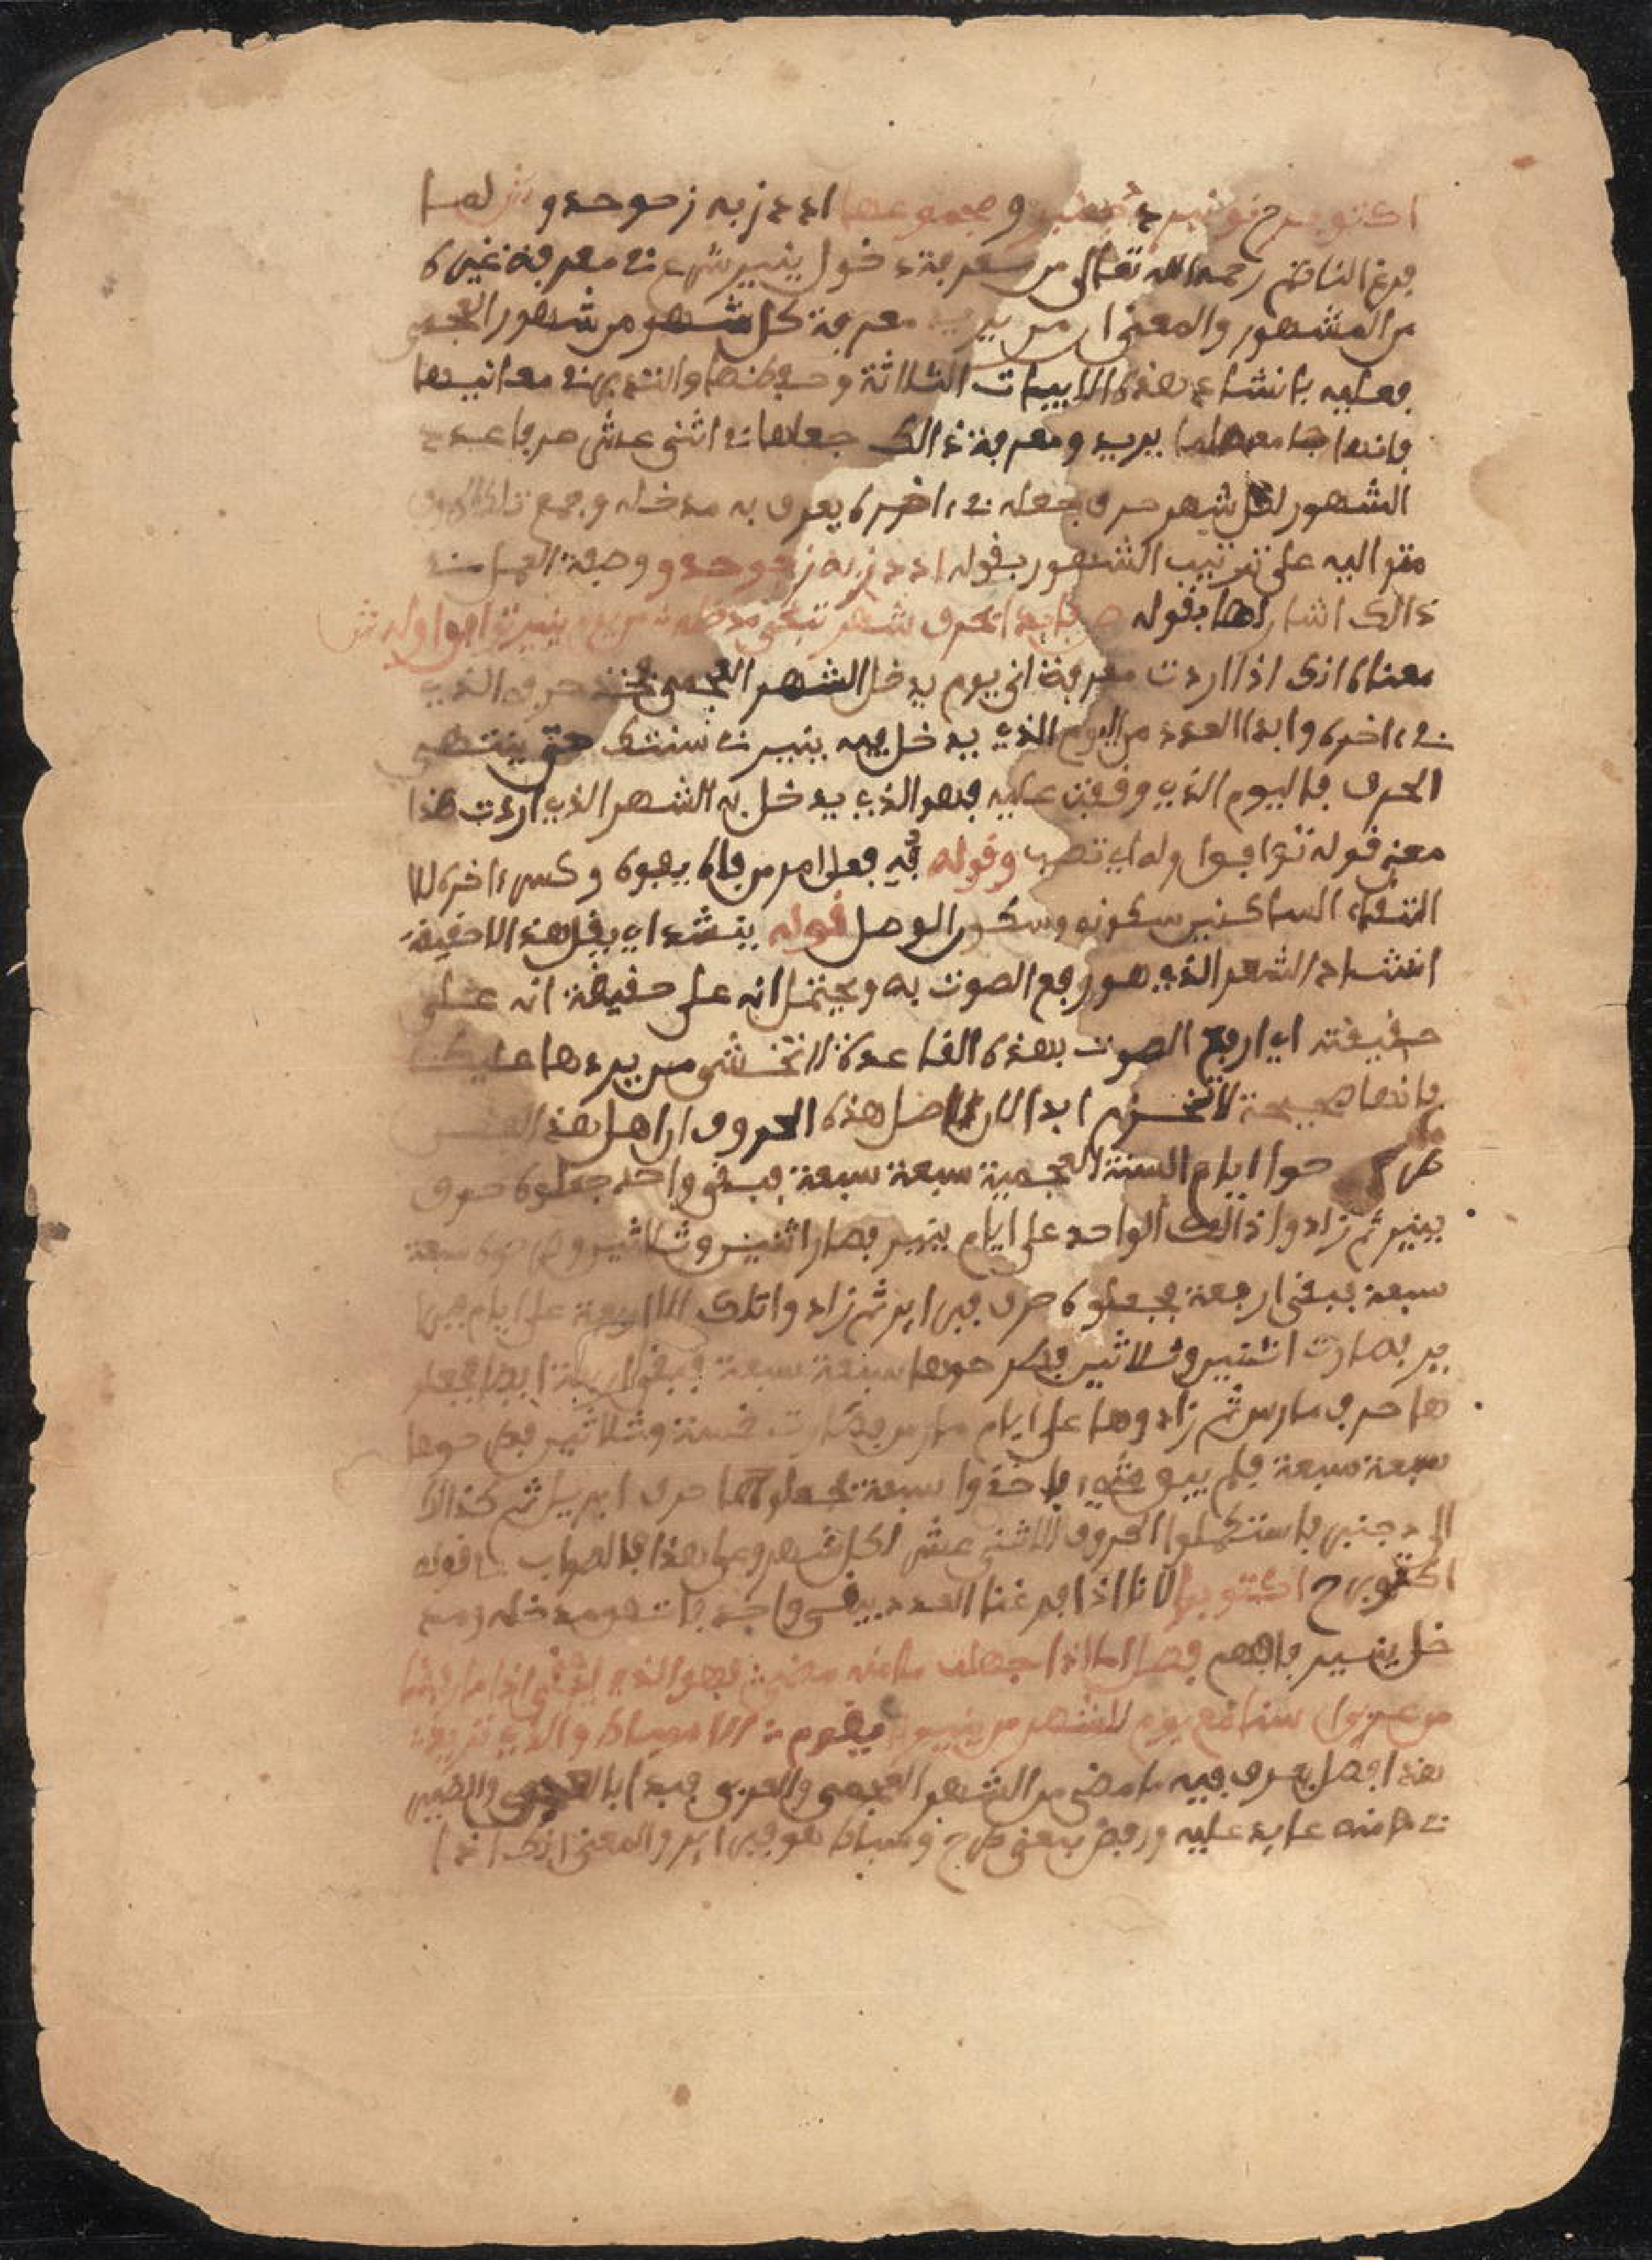 اكتوبر ح نونبر د دجنبر و مجموعها ا د د ز ب ه ز ح و ح د و ش لما
فرغ الناظم رحمه الله تعالى من معرفة دخول ينير شرع في معرفة غيره
من المشهور والمعنى ان من يريد معرفة كل شهر من شهور العجمي
فعليه بانشاد هذه الابيات الثلاثة وحفظها والتدبر في معانيها
فانها جامعة لما يريد ومعرفة ذالك جعلها في اثنى عشر حرفا عدد
الشهور لكل شهر حرف جعله في ءاخره يعرف به مدخله وجمع تلك الحروف
متواليه على ترتيب الشهور بقوله ا د د ز ب ه ز ح و ح د و وصفة العمل في
ذالك اشار لها بقوله بحرف شهر تبتغي مدخله من يوم ينير توافوا وله ش
معناه انك اذا اردت معرفة اي يوم يدخل الشهر العجمي فخذ حرفه الذي
في ءاخره وابدا العدد من اليوم الذي يدخل فيه ينير في سنتك حتى ينتهي
الحرف فاليوم الذي وقفت عليه فهو الذي يدخل به الشهر الذي اردت هذا
معنى قوله توافوا وله اي تصب وقوله فه فعل امر من فاه يفوه وكسر ءاخره لا
التقاء الساكنين سكونه وسكون الوصل قوله ينشد اي يقل هذه لا حقيقة
انشاد الشعر الذي هو رفع الصوت به ويحتمل انه على حقيقة انه على
حقيقته اي ارفع الصوت بهذه القاعدة لا تخشى من يردها عليك
فانها صحيحة لا تنخرم ابدا لان اصل هذه الحروف ان اهل هذه الفن
طرحوا ايام السنة العجمية سبعة سبعة فبقي واحد جعلوه حرف
ينير ثم زادوا ذالك الواحد على ايام ينير فصار اثنين وثلاثين وطرحوه سبعة
سبعة فبقي اربعة فجعلوه حرف فبراير ثم زادوا تلك الاربعة على ايام فبرا
ير فصارت اثنين وثلاثين فطرحوها سبعة سبعة فبقي اربعة ايضا فجعلو
ها حرف مارس ثم زادوها على ايام مارس فصارت خمسة وثلاثين فطرحوها
سبعة سبعة فلم يبق شيء فاخذوا سبعة فجعلوها حرف ابريل ثم كذالك
الى دجنبر فاستكملوا الحروف الاثنى عشر لكل شهر وعلى هذا فالصواب في قوله
اكتوبر ح اكتوبرا لانا اذا فرغنا العدد يبقى واحد فاتفق مدخله ومد
خل ينير فافهم فصل اما اذا جهلت ما منه مضى فهو الذي
من عجمي
هذا فصل يعرف فيه ما مضى من الشهر العجمي والعربي فبدا بالعجمي والضمير
في منه عايد عليه ورفض بمعنى طرح وسباط هو فبراير والمعنى انك اذا